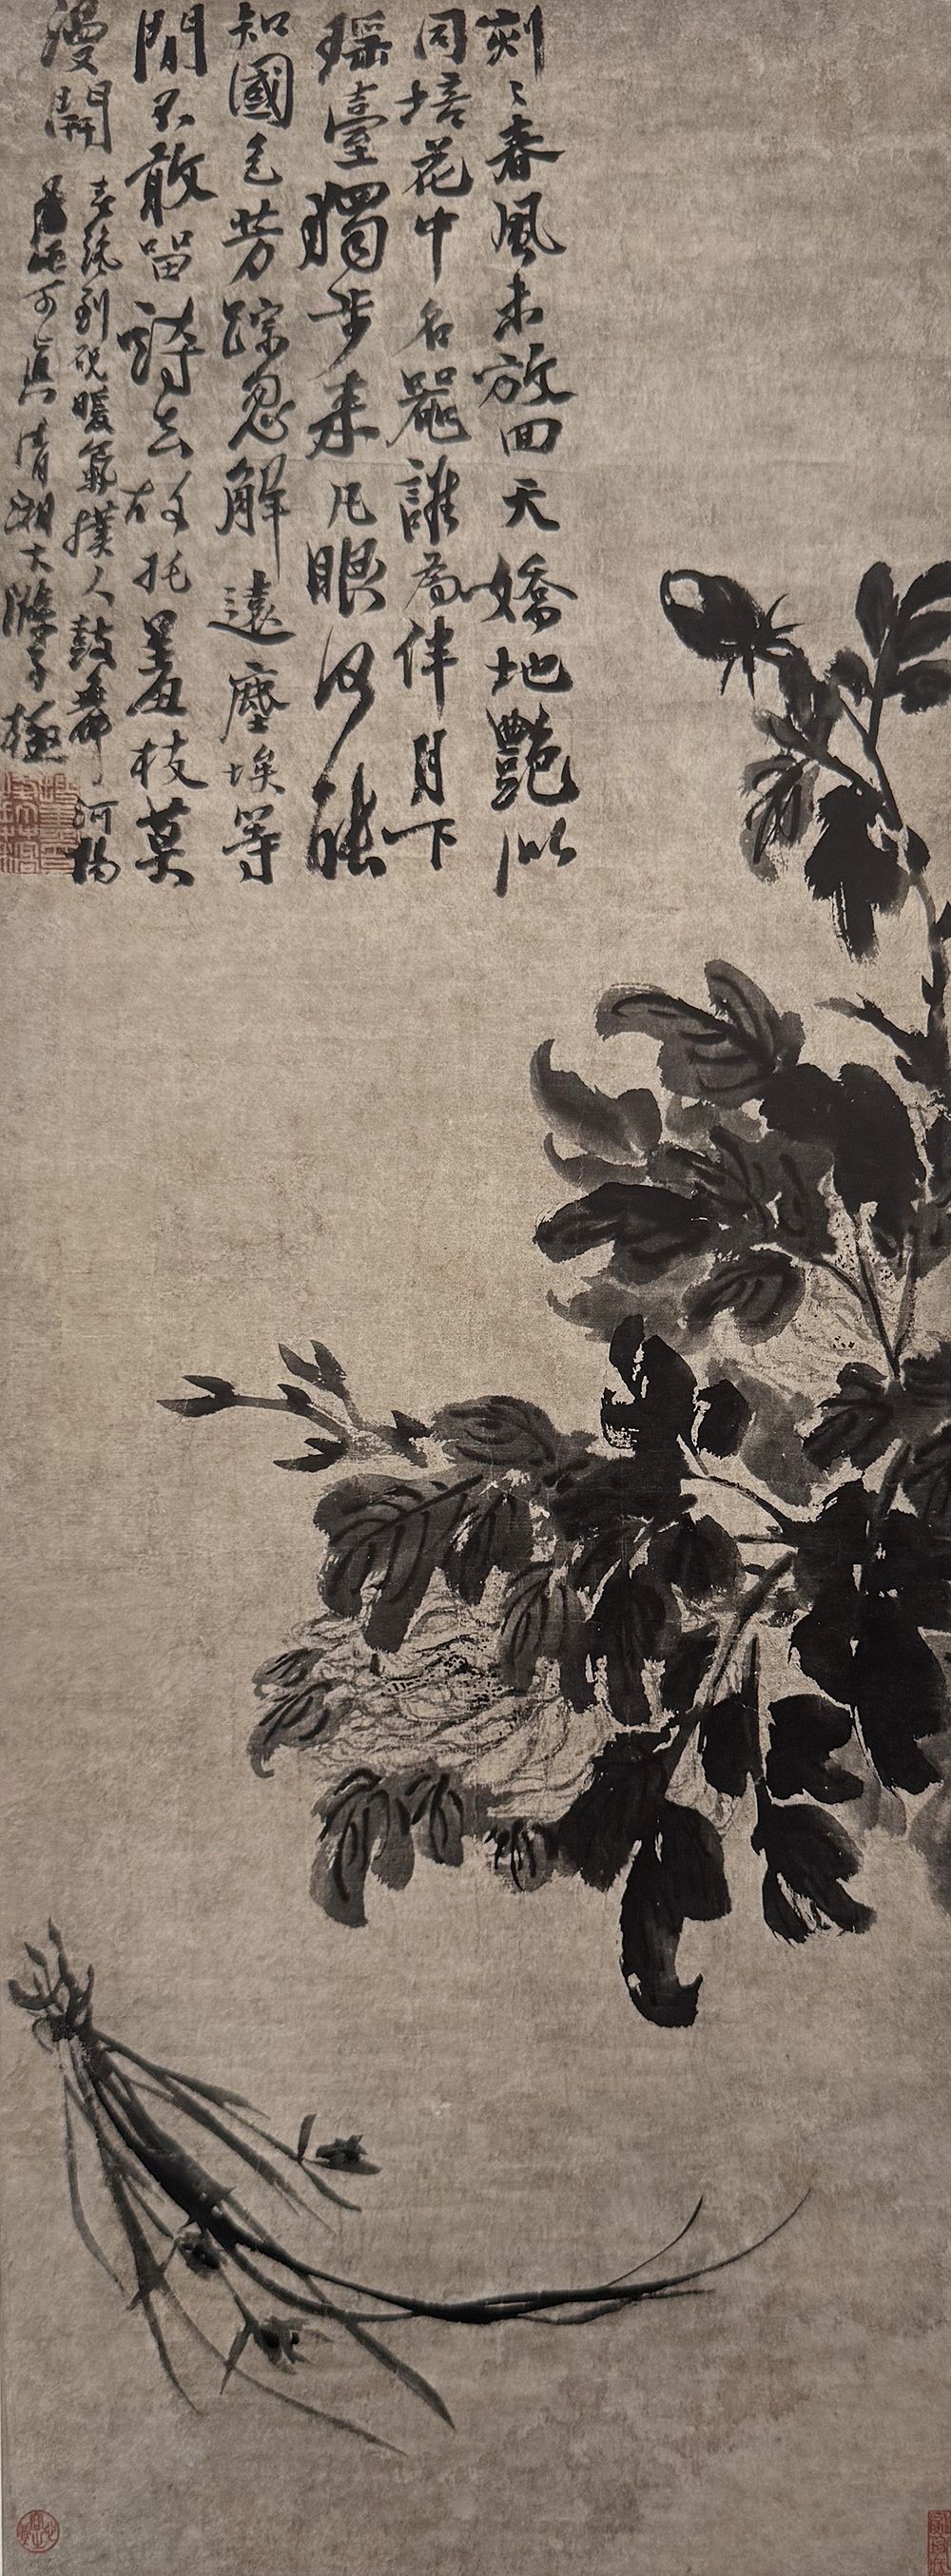 剡〻春風未放回天嬌地艷似
同培花中名器誰為伴月下
瑤臺獨步来凡眼何能
知國色芳踪忽解遠塵埃等
閒不敢留詩去故托墨枝莫
漫開
春航到硯暖氣撲人鼓舞河陽
可真清湘大滌子極